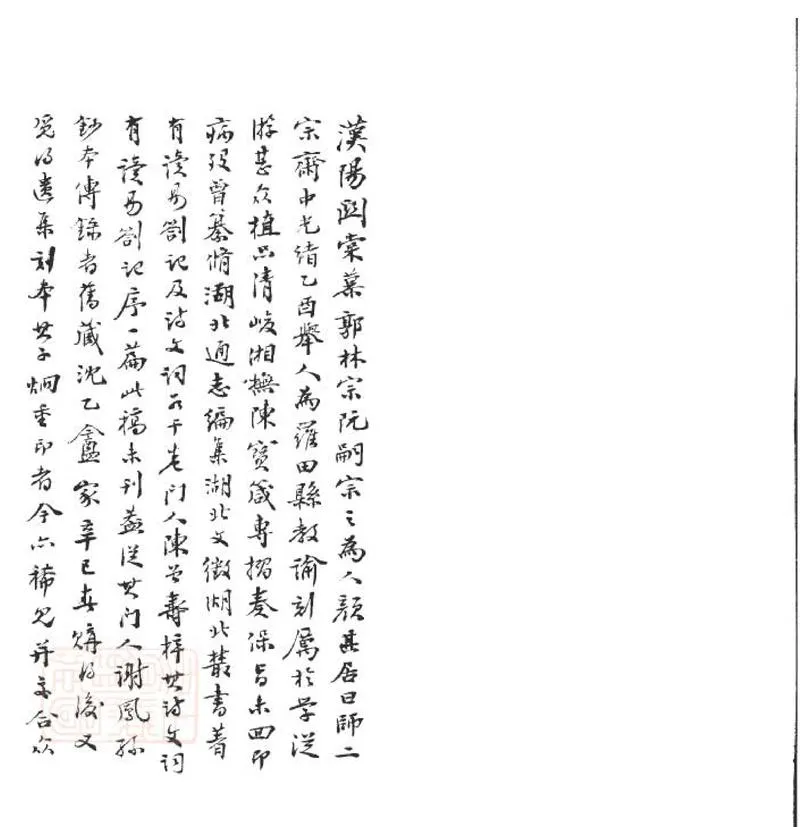 漢陽關棠慕郭林宗阮嗣宗之為人顏其居曰師二
宗齋中光緒乙酉舉人為羅田縣教諭刻厲於學從
游甚众植品清峻湘撫陳寶箴專摺奏保旨未回即
病歿曾纂脩湖北通志編集湖北文徵湖北叢書著
有讀易劄記及詩文詞若干卷門人陳曾壽梓其詩文詞
有讀易劄記序一篇此稿未刊蓋從其門人謝鳳孫
鈔本傳錄者舊藏沈乙盦家辛巳春購得後又
覓得遺集刻本其子炯重印者今亦稀見并交合众